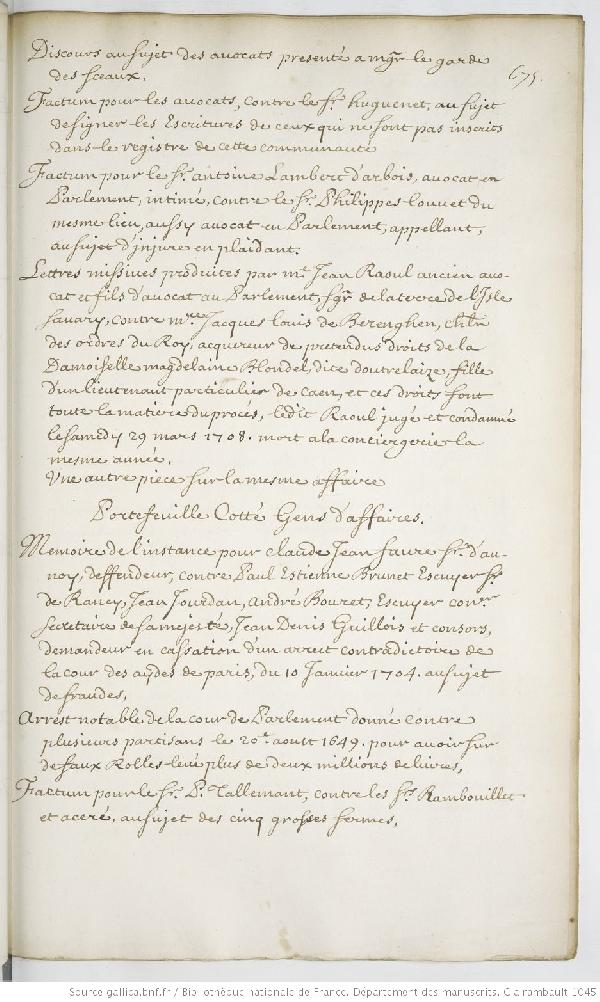 Discours au sujet des avocats presenté a mgr. le garde
des sceaux.
675.
Factum pour les avocats, contre le sr. huguenet, au sujet
de signer les Escritures de ceux qui ne sont pas inscrits
dans le registre de cette communauté
Factum pour le sr. antoine Lambert d'arbois, avocat en
Parlement, intimé, contre le sr. Philippes Louvet du
mesme lieu, aussy avocat en Parlement, appellant,
au sujet d'injure en plaidant.
Lettres missives produites par mr. Jean Raoul ancien avo-
cat et fils d'avocat au Parlement, sgr. de la terre de l'Isle
savary, contre mre. Jacques Louis de Berenghen, chlr.
des ordres du Roy, acquereur de pretendus droits de la
Damoiselle magdelaine Blondel, dite doutrelaize, fille
d'un lieutenant particulier de caen, et ces droits font
toute la matiere du procès, ledit Raoul jugé et condamné
le samedy 29 mars 1708. mort a la conciergerie la
mesme année.
Une autre piece sur la mesme affaire
Portefeuille Cotté Gens d'affaires.
Memoire de l'instance pour claude Jean faure sr. d'au-
noy, deffendeur, contre Paul Estienne Brunet Escuyer sr.
de Rancy, Jean Jourdan, André Bouret, Escuyer conr.
secretaire de sa majesté, Jean Denis Guillois et consors,
demandeur en cassation d'un arrest contradictoire de
la cour des aydes de paris, du 10 Janvier 1704. au sujet
de fraudes,
Arrest notable de la cour de Parlement donné contre
plusieurs partisans le 20e. aoust 1649. pour avoir sur
de faux Rolles levé plus de deux millions de livres,
Factum pour le sr. P. Tallemant, contre les srs. Rambouillet
et aceré, au sujet des cinq grosses fermes,
Source gallica.bnf.fr / Bibliothèque nationale de France. Département des manuscrits. Clairambault 1045